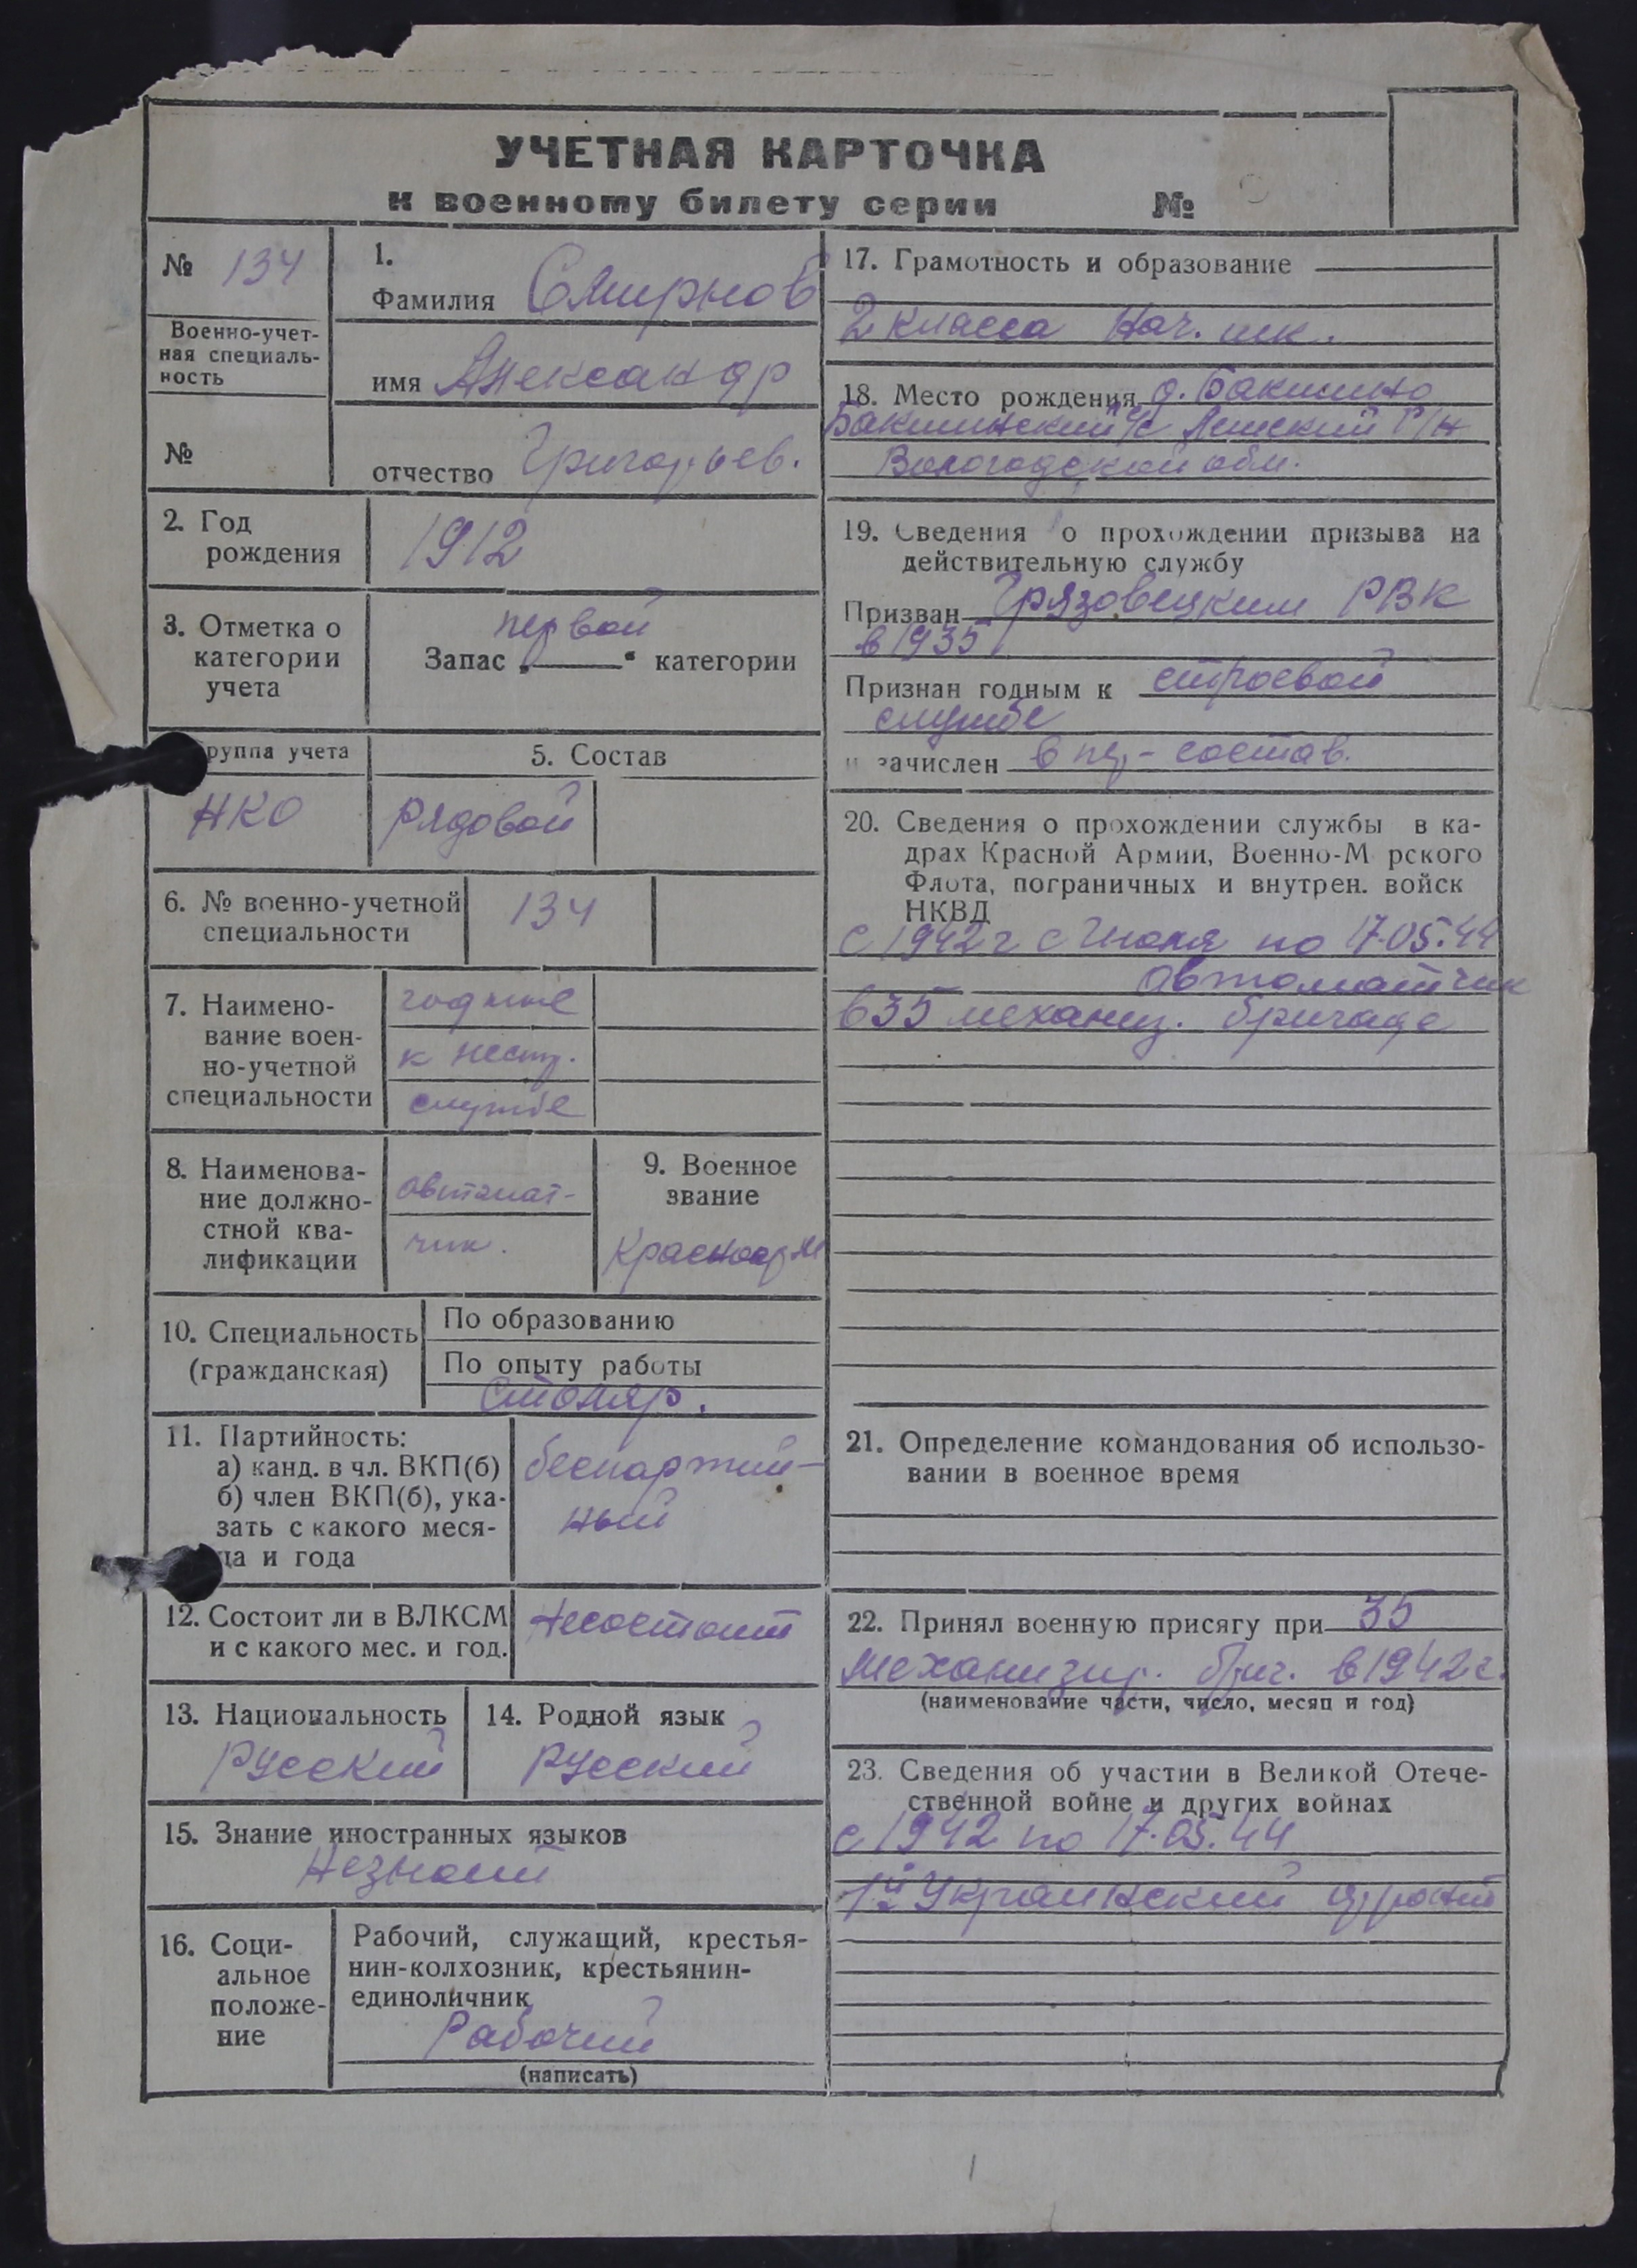 УЧЕТНАЯ КАРТОЧКА
к военному билету серии №
№ 134
Военно-учет-
ная специаль-
ность
№
1.
Фамилия Смирнов
имя Александр
отчество Григорьев.
2. Год
рождения
1912
3. Отметка о
категории
учета
первой
Запас „ “ категории
руппа учета
НКО
5. Состав
Рядовой
6. № военно-учетной
специальности
134
7. Наимено-
вание воен-
но-учетной
специальности
годные
к нестр.
службе
8. Наименова-
ние должно-
стной ква-
лификации
автомат-
чик.
9. Военное
звание
Красноарм
10. Специальность
(гражданская)
По образованию
По опыту работы
Столяр.
11. Партийность:
а) канд. в чл. ВКП(б)
б) член ВКП(б), ука-
зать с какого меся-
ца и года
беспартий-
ный
12. Состоит ли в ВЛКСМ
и с какого мес. и год.
Несостоит
13. Национальность
Русский
14. Родной язык
Русский
15. Знание иностранных языков
Незнает
16. Соци-
альное
положе-
ние
Рабочий, служащий, крестья-
нин-колхозник, крестьянин-
единоличник
Рабочий
(написать)
17. Грамотность и образование
2 класса Нач. шк.
18. Место рождения д. Бакшино
Бакшинский с/с Лежский Р/Н
Вологодской обл.
19. Сведения о прохождении призыва на
действительную службу
Призван Грязовецким РВК
в 1935
Признан годным к строевой
службе
и зачислен в пер-состав.
20. Сведения о прохождении службы в ка-
драх Красной Армии, Военно-М рского
Флота, пограничных и внутрен. войск
НКВД
с 1942 г с Июля по 17.05.44
автоматчик
в 35 механиз. бригаде
21. Определение командования об использо-
вании в военное время
22. Принял военную присягу при 35
Механизир. бриг. в 1942 г.
(наименование части, число, месяц и год)
23. Сведения об участии в Великой Отече-
ственной войне и других войнах
с 1942 по 17.05.44
1й Украинский фронт